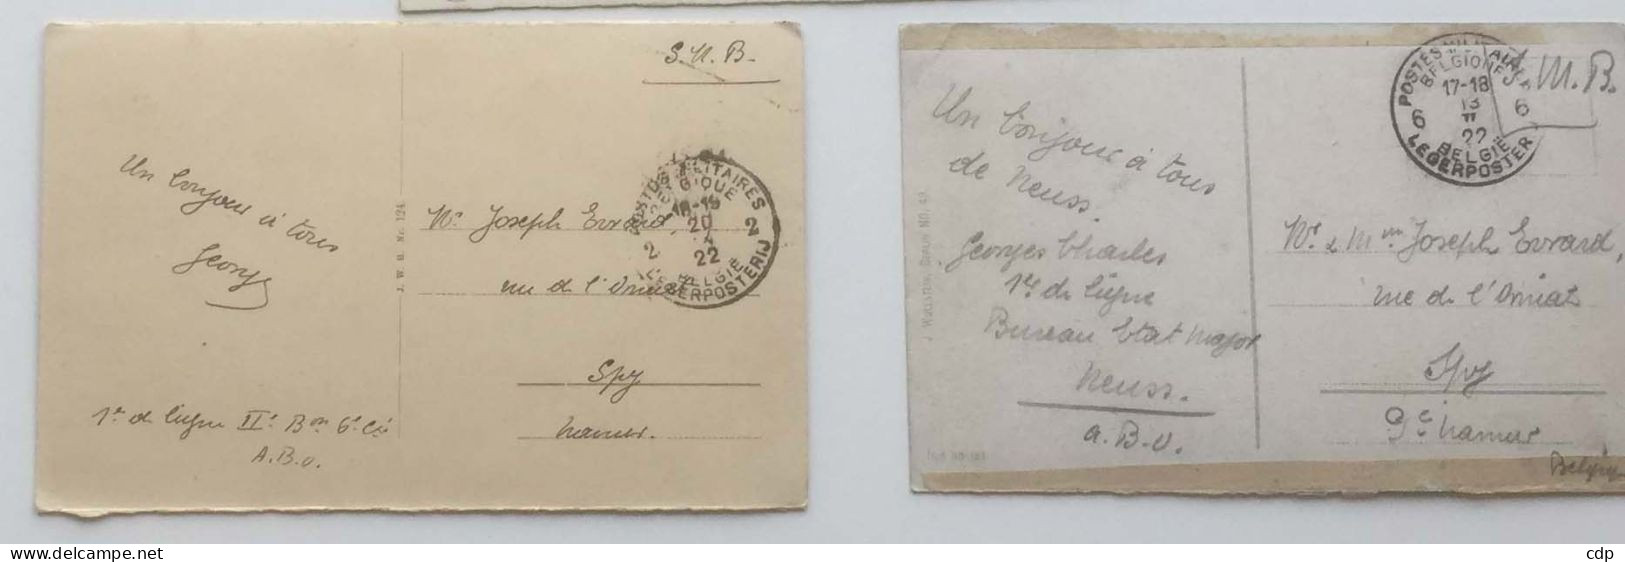 S.M.B.
POSTES MILITAIRES
BELGIQUE
18-19
20
2 2
22
BELGIË
LEGERPOSTERIJ
Un bonjour à tous
Georges
J. W. B. Nr. 124
Mr. Joseph Evrard,
rue de l'Orniat
Spy
Namur.
1er de Ligne IIe Bon 6e Cie
A.B.O.
POSTES MILITAIRES
BELGIQUE
17-18
13
6 6
22
BELGIË
LEGERPOSTERIJ
S.M.B.
Un bonjour à tous
de Neuss.
Georges Charles
1er de Ligne
Bureau Etat Major
Neuss.
A.B.O.
Mr & Mme Joseph Evrard,
rue de l'Orniat
Spy
Namur
Belgique
cdp